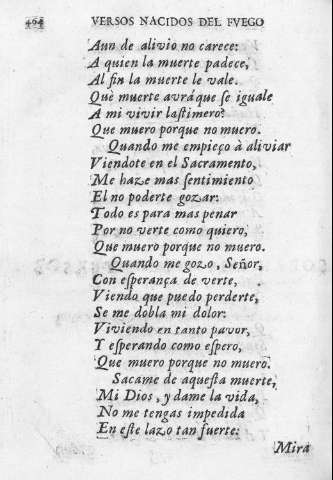 404 VERSOS NACIDOS DEL FVEGO
Aun de alivio no carece:
A quien la muerte padece,
Al fin la muerte le vale.
Què muerte avrá que ſe iguale
A mi vivir laſtimero?
Que muero porque no muero.
Quando me empieço à aliviar
Viendote en el Sacramento,
Me haze mas ſentimiento
El no poderte gozar:
Todo es para mas penar
Por no verte como quiero,
Que muero porque no muero.
Quando me gozo, Señor,
Con eſperança de verte,
Viendo que puedo perderte,
Se me dobla mi dolor:
Viviendo en tanto pavor,
Y eſperando como eſpero,
Que muero porque no muero.
Sacame de aqueſta muerte,
Mi Dios, y dame la vida,
No me tengas impedida
En eſte lazo tan fuerte:
Mira